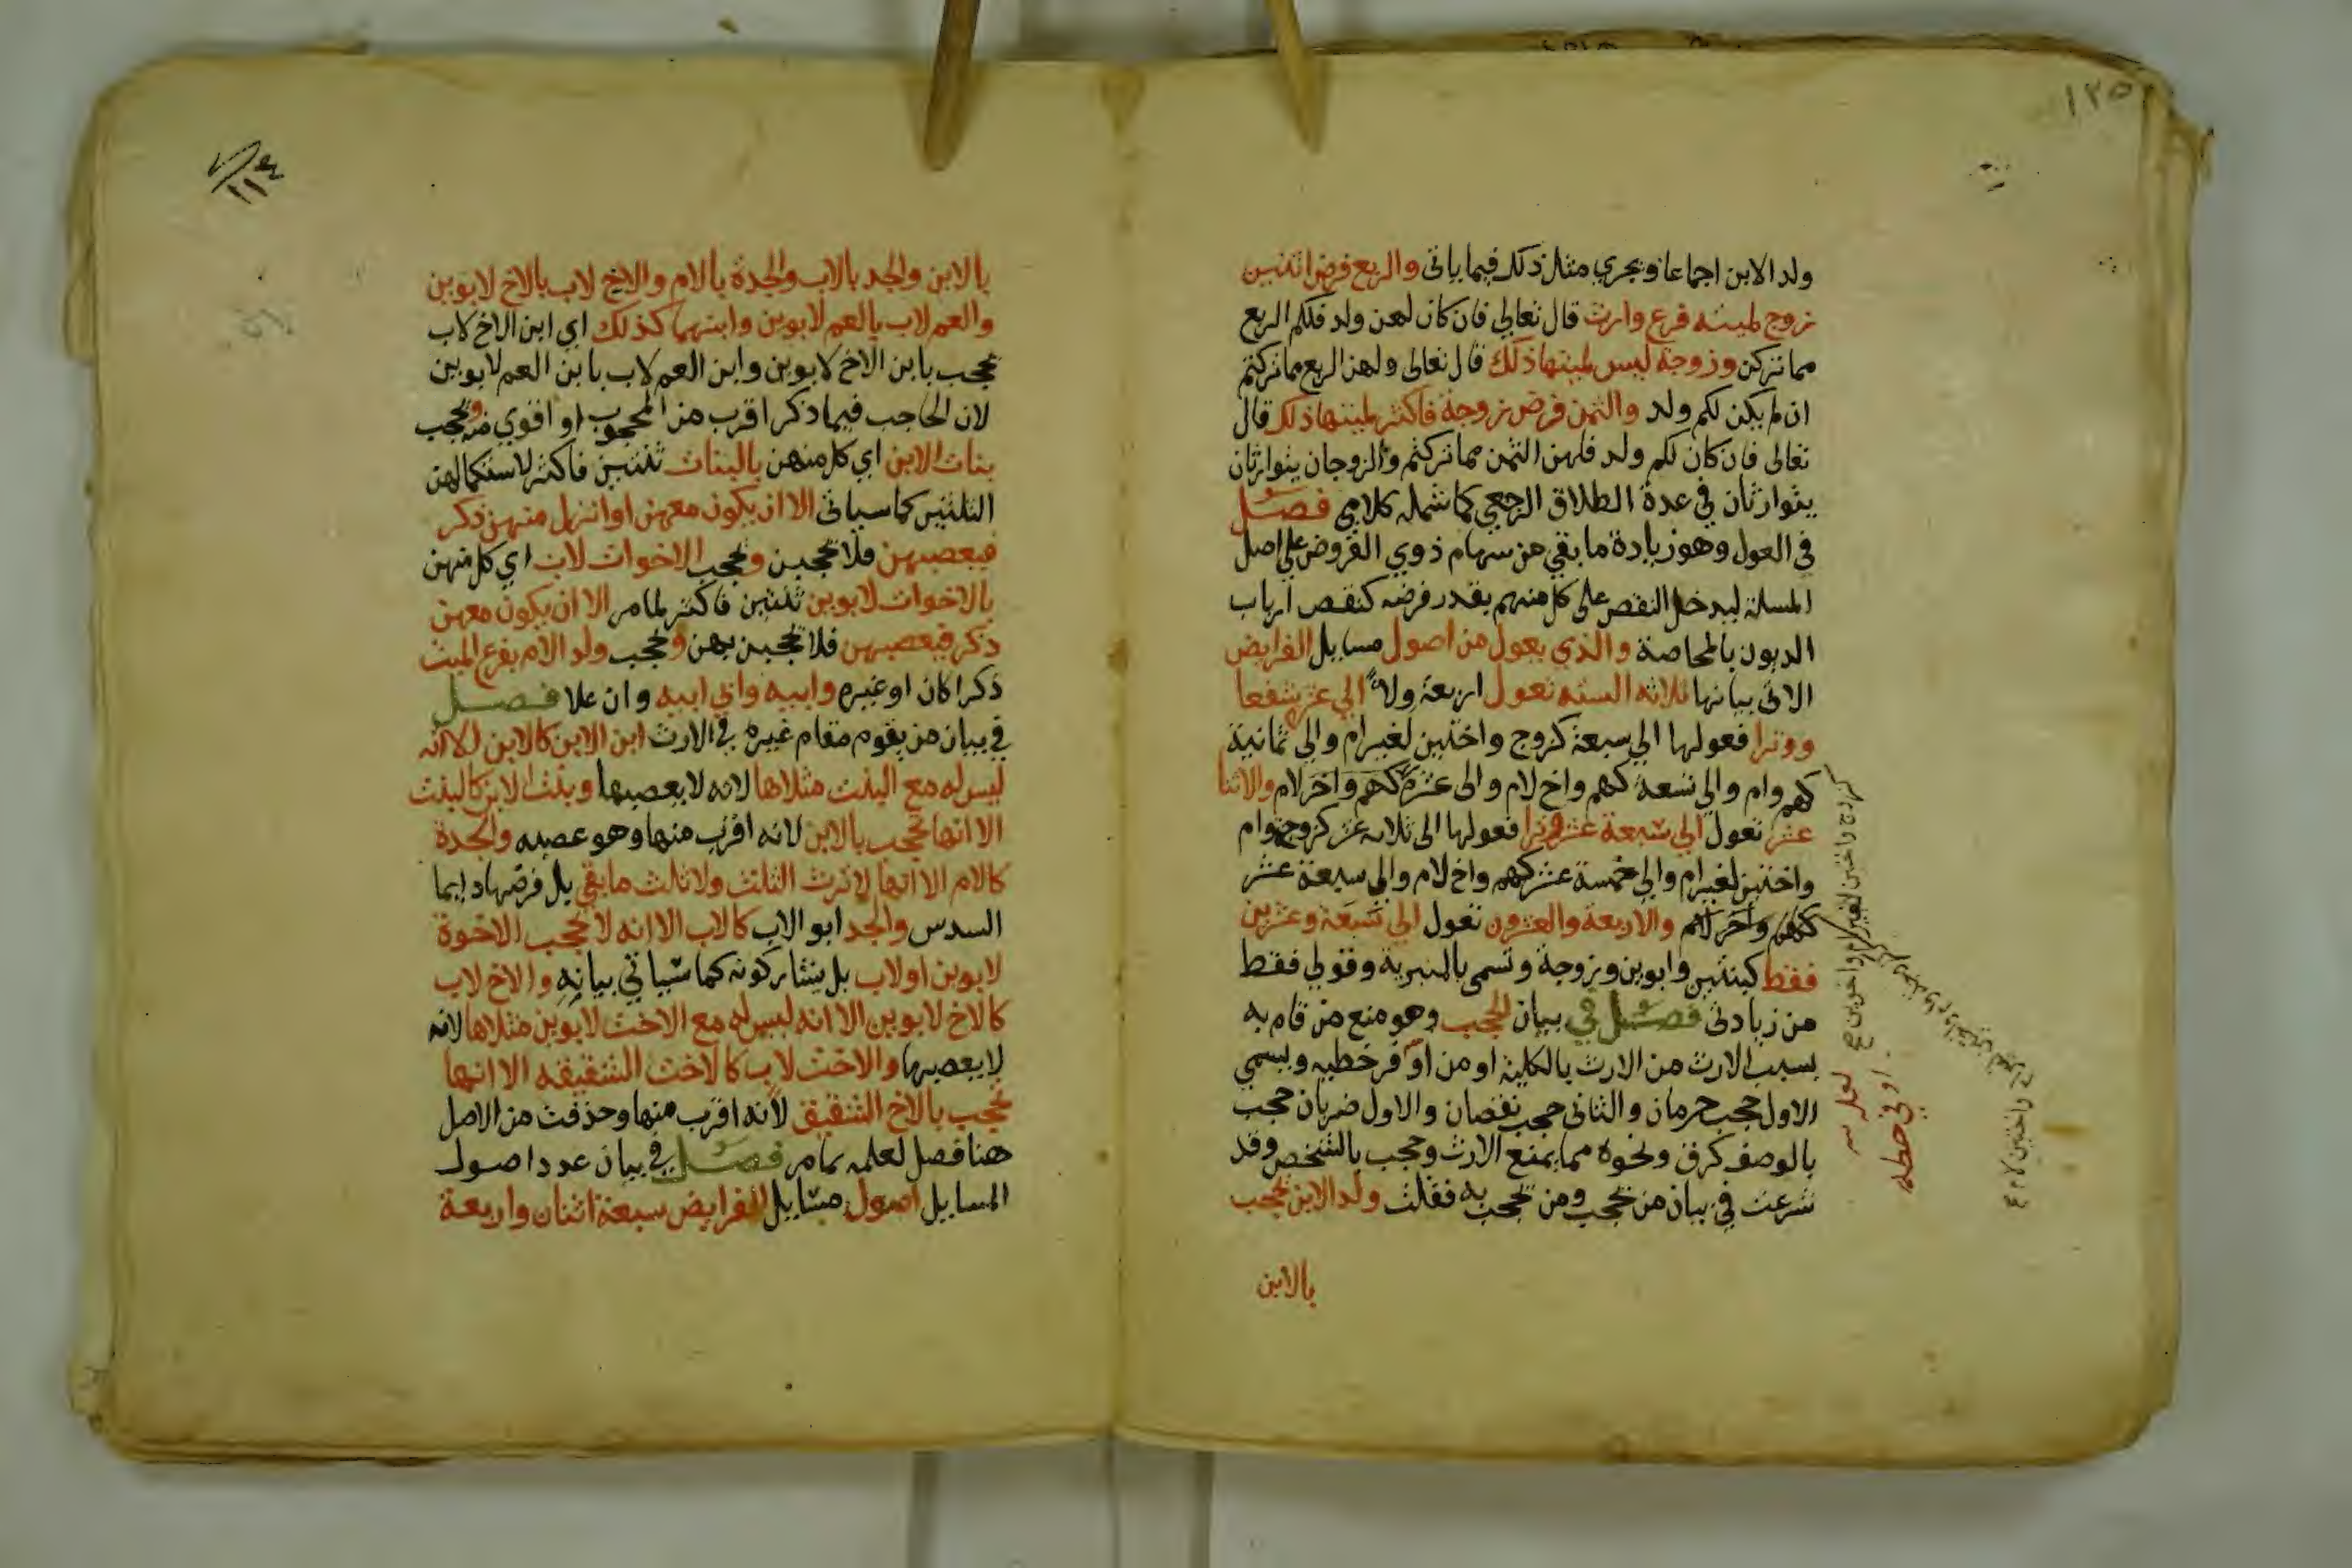 ١٢٥
ولد الابن اجماعا ويجري مثل ذلك فيما ياتى والربع فرض اثنين
زوج لميته فرع وارث قال تعالي فان كان لهن ولد فلكم الربع
مما تركن وزوجة ليس لميتها ذلك قال تعالى ولهن الربع مما تركتم
ان لم يكن لكم ولد والثمن فرض زوجة فاكثر لميتها ذلك قال
تعالى فان كان لكم ولد فلهن الثمن مما تركتم والزوجان يتوارثان
يتوارثان في عدة الطلاق الرجعي كما شمله كلامي فصل
في العول وهو زيادة ما بقي من سهام ذوي الفروض على اصل
المسلة ليدخل النقص على كل منهم بقدر فرضه كنقص ارباب
الديون بالمحاصة والذي يعول من اصول مسايل الفرايض
الاتى بيانها ثلاثه السته تعول اربعة ولاء الي عشر شفعا
ووترا فعولها الي سبعة كزوج واختين لغير ام والي ثمانية
كهم وام والي تسعة كهم واخ لام والى عشرة كهم واخر لام والاثنا
عشر تعول الي سبعة عشر وترا فعولها الى ثلاثه عشر كزوجة وام
واختين لغير ام والي خمسة عشر كهم واخ لام والي سبعة عشر
كهم واخر لام والاربعة والعشرون تعول الي سبعة وعشرين
فقط كبنتين وابوين وزوجة وتسمى بالمنبرية وقولي فقط
من زيادتى فصل في بيان الحجب وهو منع من قام به
بسبب الارث من الارث بالكلية او من اوفر خطيه ويسمي
الاول حجب حرمان والثانى حجب نقصان والاول ضربان حجب
بالوصف كرق ونحوه مما يمنع الارث وحجب بالشخص وقد
شرعت في بيان من يحجب ومن يحجب به فقلت ولد الابن يحجب
بالابن
لعله
او في حظيه
١١٤
بالابن والجد بالاب والجدة بالام والاخ لاب بالاخ لابوين
والعم لاب بالعم لابوين وابنهما كذلك اي ابن الاخ لاب
يحجب بابن الاخ لابوين وابن العم لاب بابن العم لابوين
لان الحاجب فيما ذكر اقرب من المحجوب او اقوي منه ويحجب
بنات الابن اي كل منهن بالبنات ثنتين فاكثر لاستكمالهن
الثلثين كما سياتى الا ان يكون معهن او انزل منهن ذكر
فيعصبهن فلا يحجبن ويحجب الاخوات لاب اي كل منهن
بالاخوات لابوين ثنتين فاكثر لما مر الا ان يكون معهن
ذكر فيعصبهن فلا يحجبن بهن ويحجب ولد الام بفرع الميت
ذكرا كان او غيره وابيه وابي ابيه وان علا فصل
في بيان من يقوم مقام غيره في الارث ابن الابن كالابن الا انه
ليس له مع البنت مثلاها لانه لا يعصبها وبنت الابن كالبنت
الا انها تحجب بالابن لانه اقرب منها وهو عصبه والجدة
كالام الا انها لا ترث الثلث ولا ثلث ما بقي بل فرضها دايما
السدس والجد ابو الاب كالاب الا انه لا يحجب الاخوة
لابوين او لاب بل يشاركونه كما سياتي بيانه والاخ لاب
كالاخ لابوين الا انه ليس له مع الاخت لابوين مثلاها لانه
لا يعصبها والاخت لاب كالاخت الشقيقه الا انها
تحجب بالاخ الشقيق لانه اقرب منها وحذفت من الاصل
هنا فصل لعلمه مما مر فصل في بيان عدد اصول
المسايل اصول مسايل الفرايض سبعة اثنان واربعة